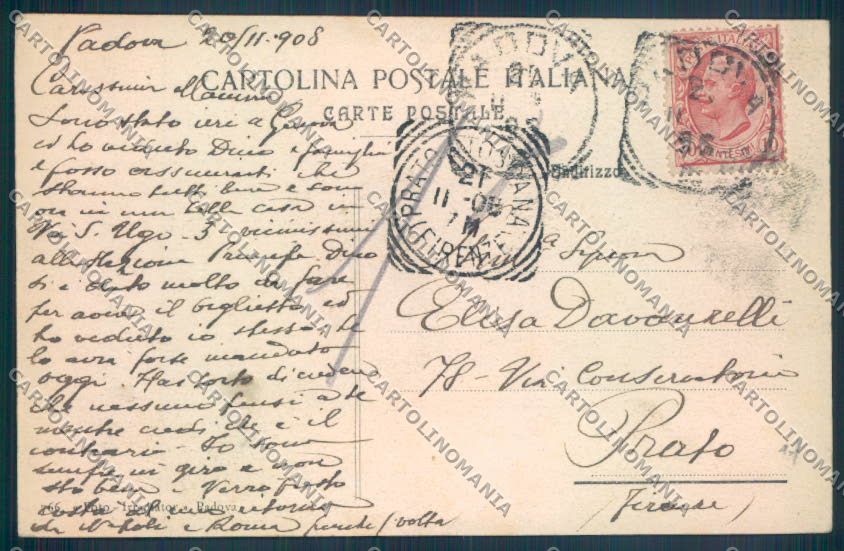 Padova 20/11.908
CARTOLINA POSTALE ITALIANA
CARTE POSTALE
Carissima Mamma
Sono stato ieri a Genova
ed ho veduto Dino e famiglia
e posso assicurarti che
stanno tutti bene e sono
ora in una bella casa in
Via S. Ugo - 3 vicinissimi
alla Stazione Principe Dino
si è dato molto da fare
per avere il biglietto ed
ho veduto io stesso te
lo avrà forse mandato
oggi Hai torto di credere
che nessuno pensi a te
mentre credi che è il
contrario - Io sono
sempre in giro e non
sto bene - Verrò presto
costà al mio ritorno
da Napoli e Roma
266 - Foto - Padova
Indirizzo
PADOVA
PADOVA
PRATO TOSCANA
21
11-08
(FIRENZE)
POSTE ITALIANE
10 CENTESIMI 10
a Signora
Elisa Davanzelli
78 - Via Conservatorio
Prato
(Firenze)
CARTOLINOMANIA